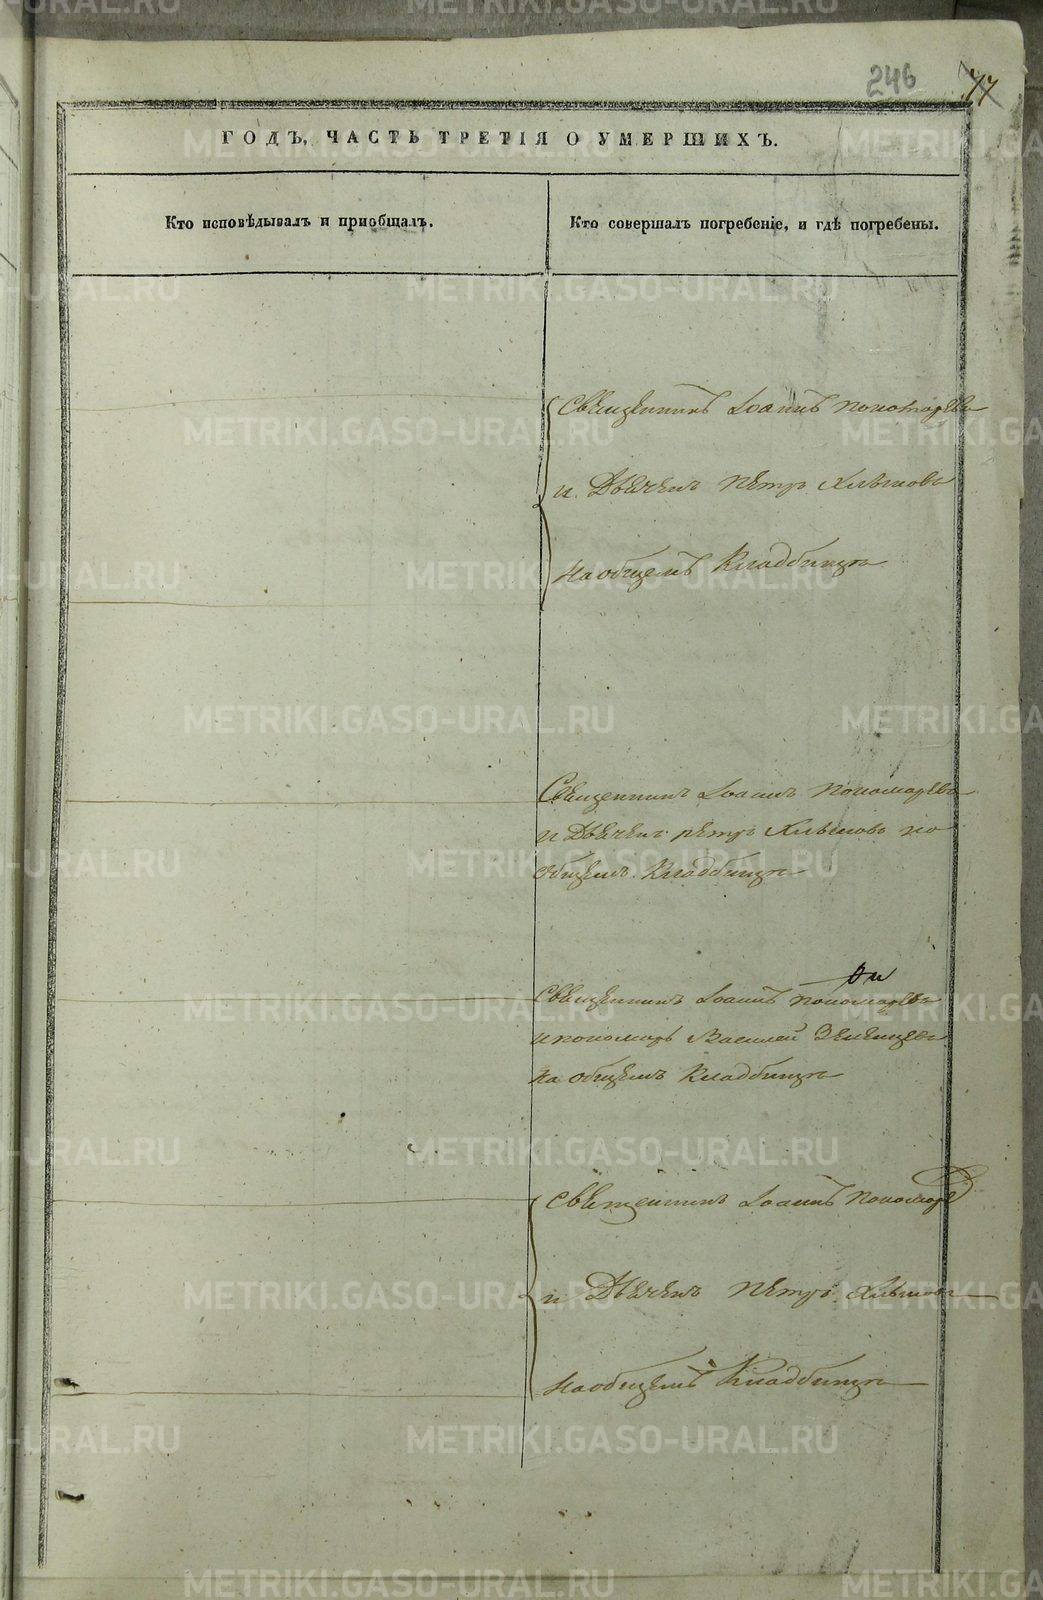 246
77
ГОДЪ, ЧАСТЬ ТРЕТІЯ О УМЕРШИХЪ.
Кто исповѣдывалъ и пріобщалъ.
Кто совершалъ погребеніе, и гдѣ погребены.
Священникъ Іоаннъ Пономаревъ
и Дьячекъ Петръ
на общемъ Кладбищѣ
Священникъ Іоаннъ Пономаревъ
и Дьячекъ Петръ на
общемъ Кладбищѣ
Священникъ Іоаннъ Пономаревъ
и пономарь Василей
на общемъ Кладбищѣ
Священникъ Іоаннъ Пономарев
и Дьячекъ Петръ
на общемъ Кладбищѣ
METRIKI.GASO-URAL.RU